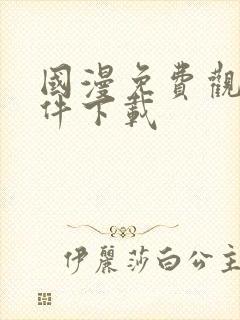 國漫免費觀
件下載
伊麗莎白公主